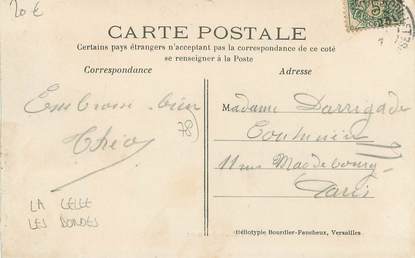 20 €
CARTE POSTALE
Certains pays étrangers n'acceptant pas la correspondance de ce coté
se renseigner à la Poste
Correspondance
Adresse
bien
Théo
78)
LA CELLE
LES BORDES
Madame Darrigade
11 rue Magdebourg
Paris
Héliotypie Bourdier-Faucheux, Versailles